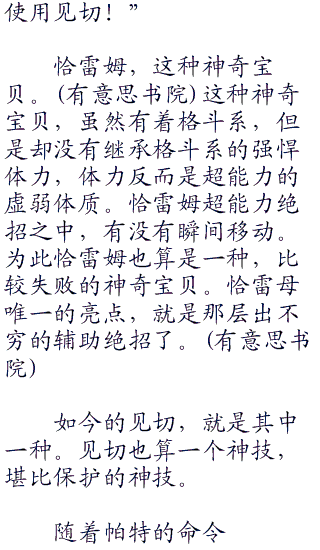 使用见切！”
恰雷姆，这种神奇宝
贝。(有意思书院)这种神奇
宝贝，虽然有着格斗系，但
是却没有继承格斗系的强悍
体力，体力反而是超能力的
虚弱体质。恰雷姆超能力绝
招之中，有没有瞬间移动。
为此恰雷姆也算是一种，比
较失败的神奇宝贝。恰雷母
唯一的亮点，就是那层出不
穷的辅助绝招了。(有意思书
院)
如今的见切，就是其中
一种。见切也算一个神技，
堪比保护的神技。
随着帕特的命令